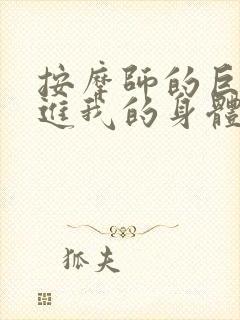 按摩師的巨
進我的身體
狐夫